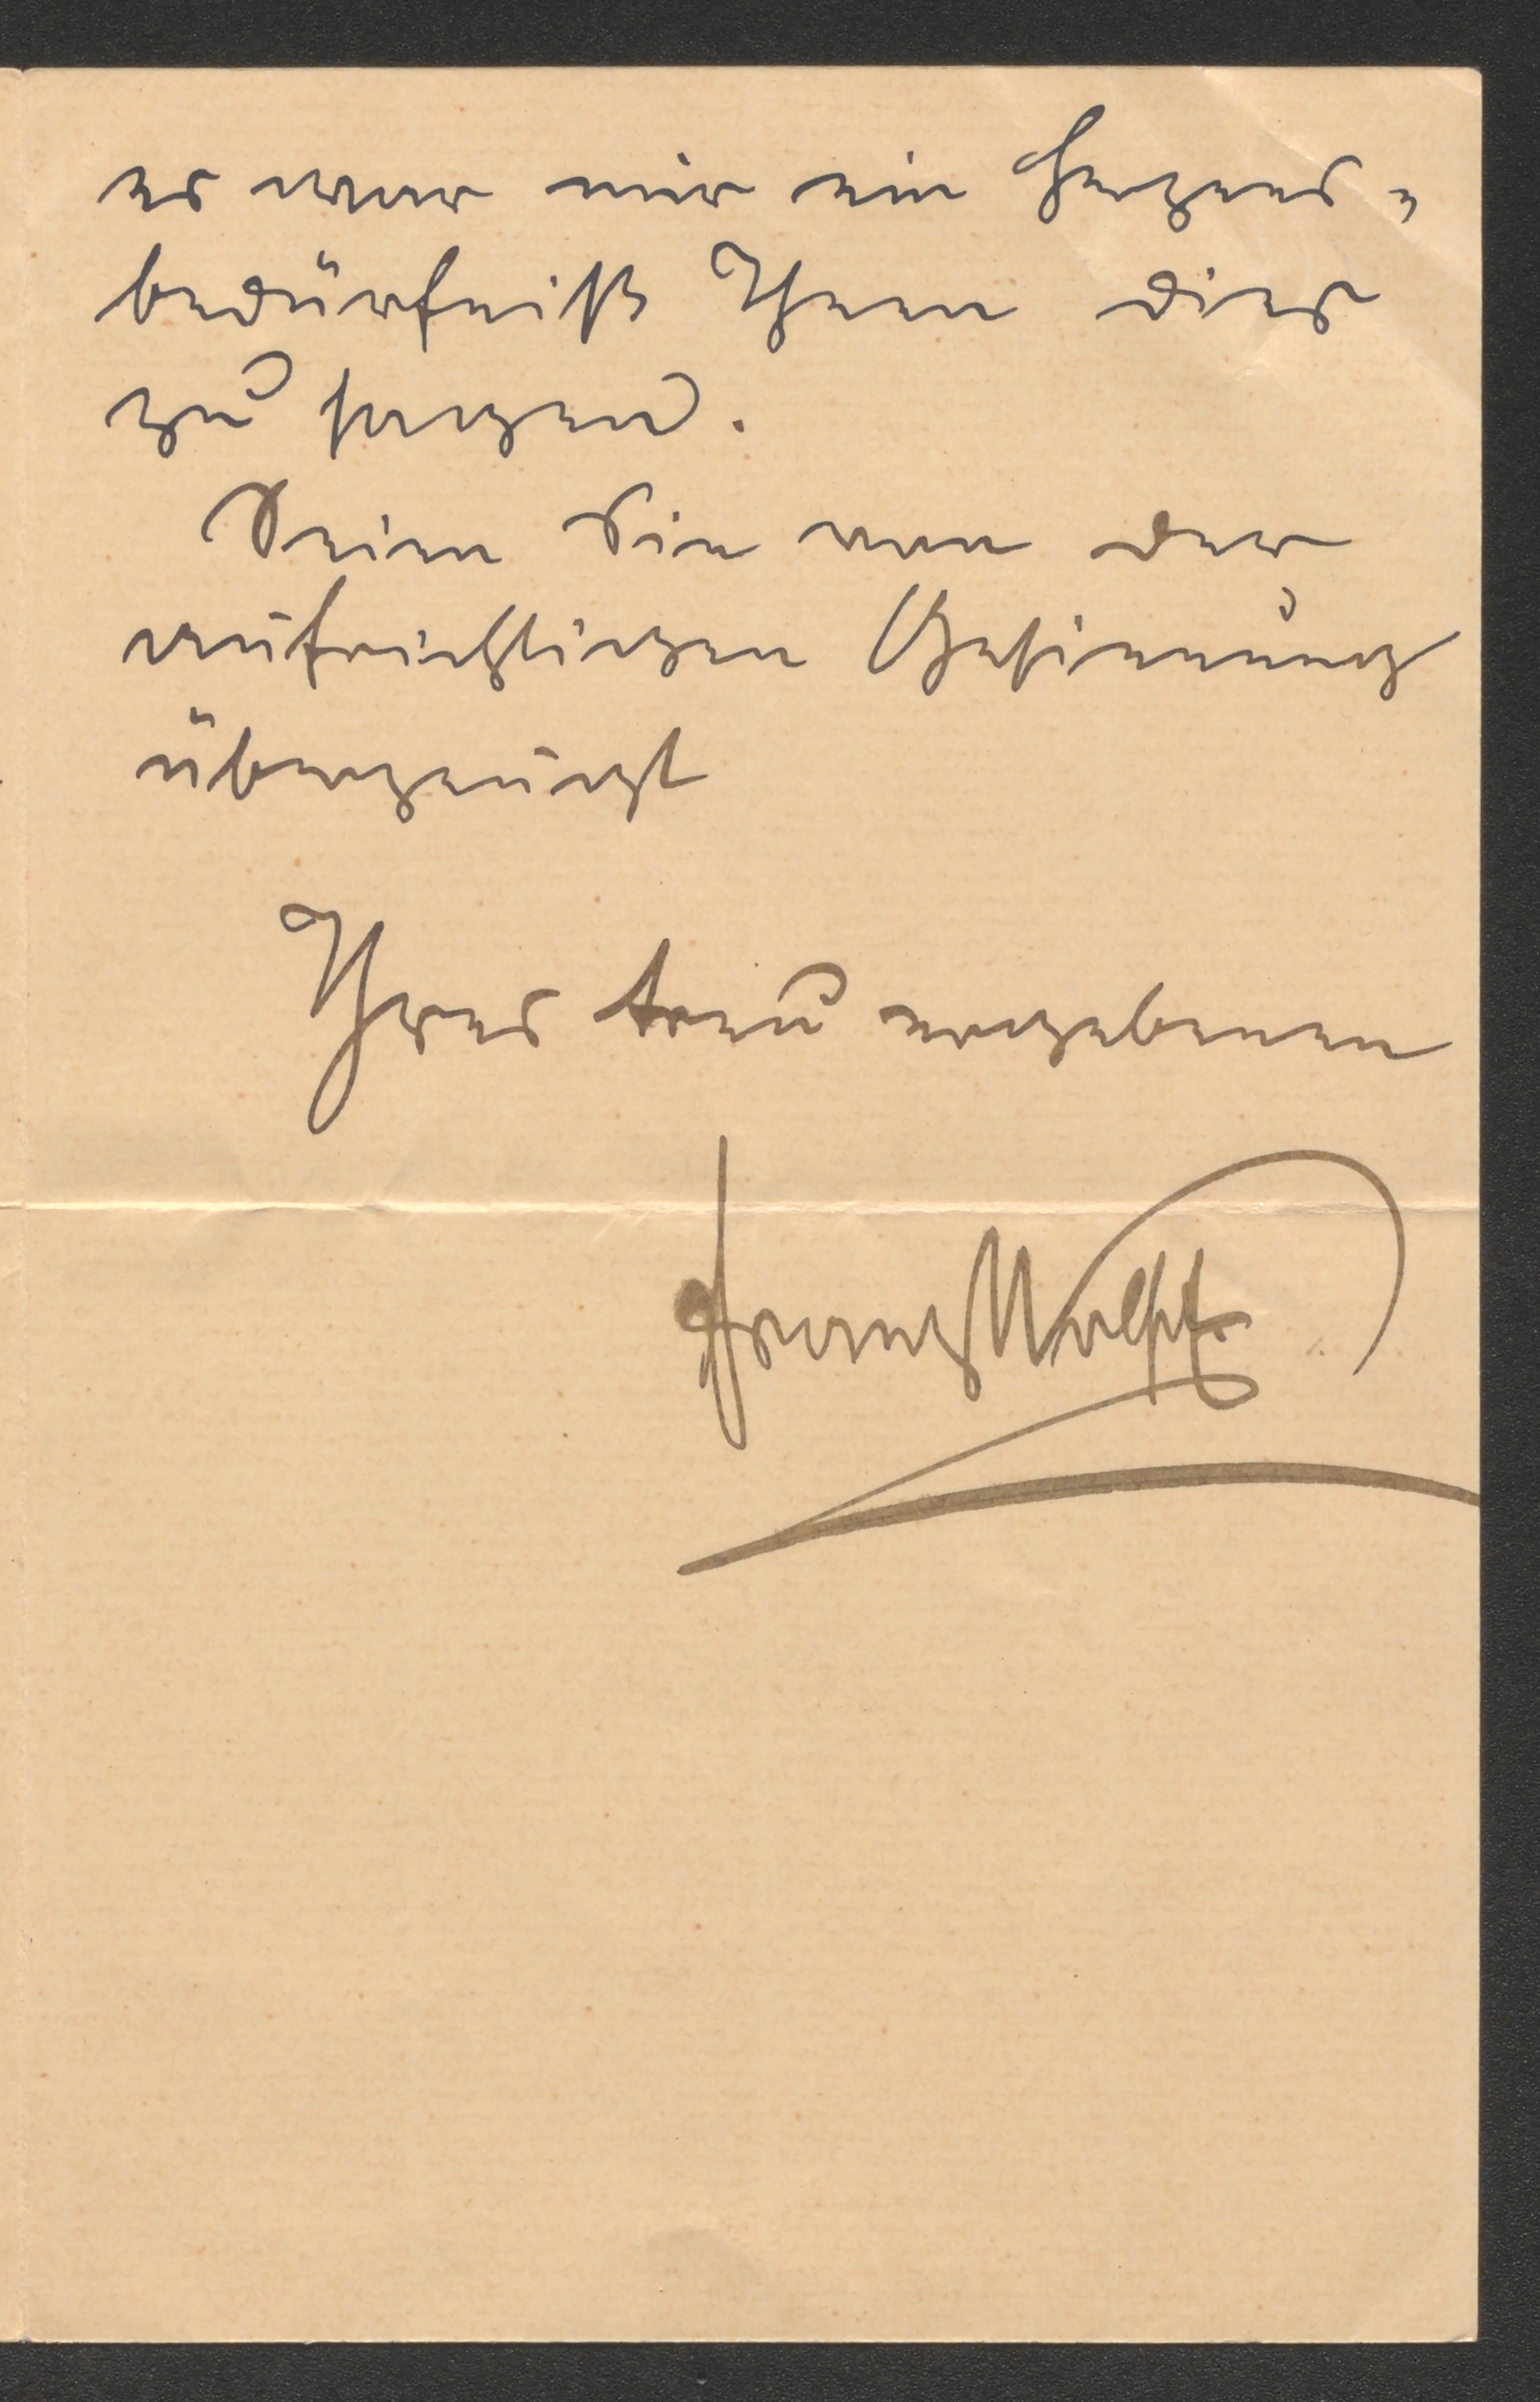 es war mir ein Herzens-
bedürfniß Ihnen dies
zu sagen.
Seien Sie von der
aufrichtigen Gesinnung
überzeugt
Ihres treu ergebenen
Franz